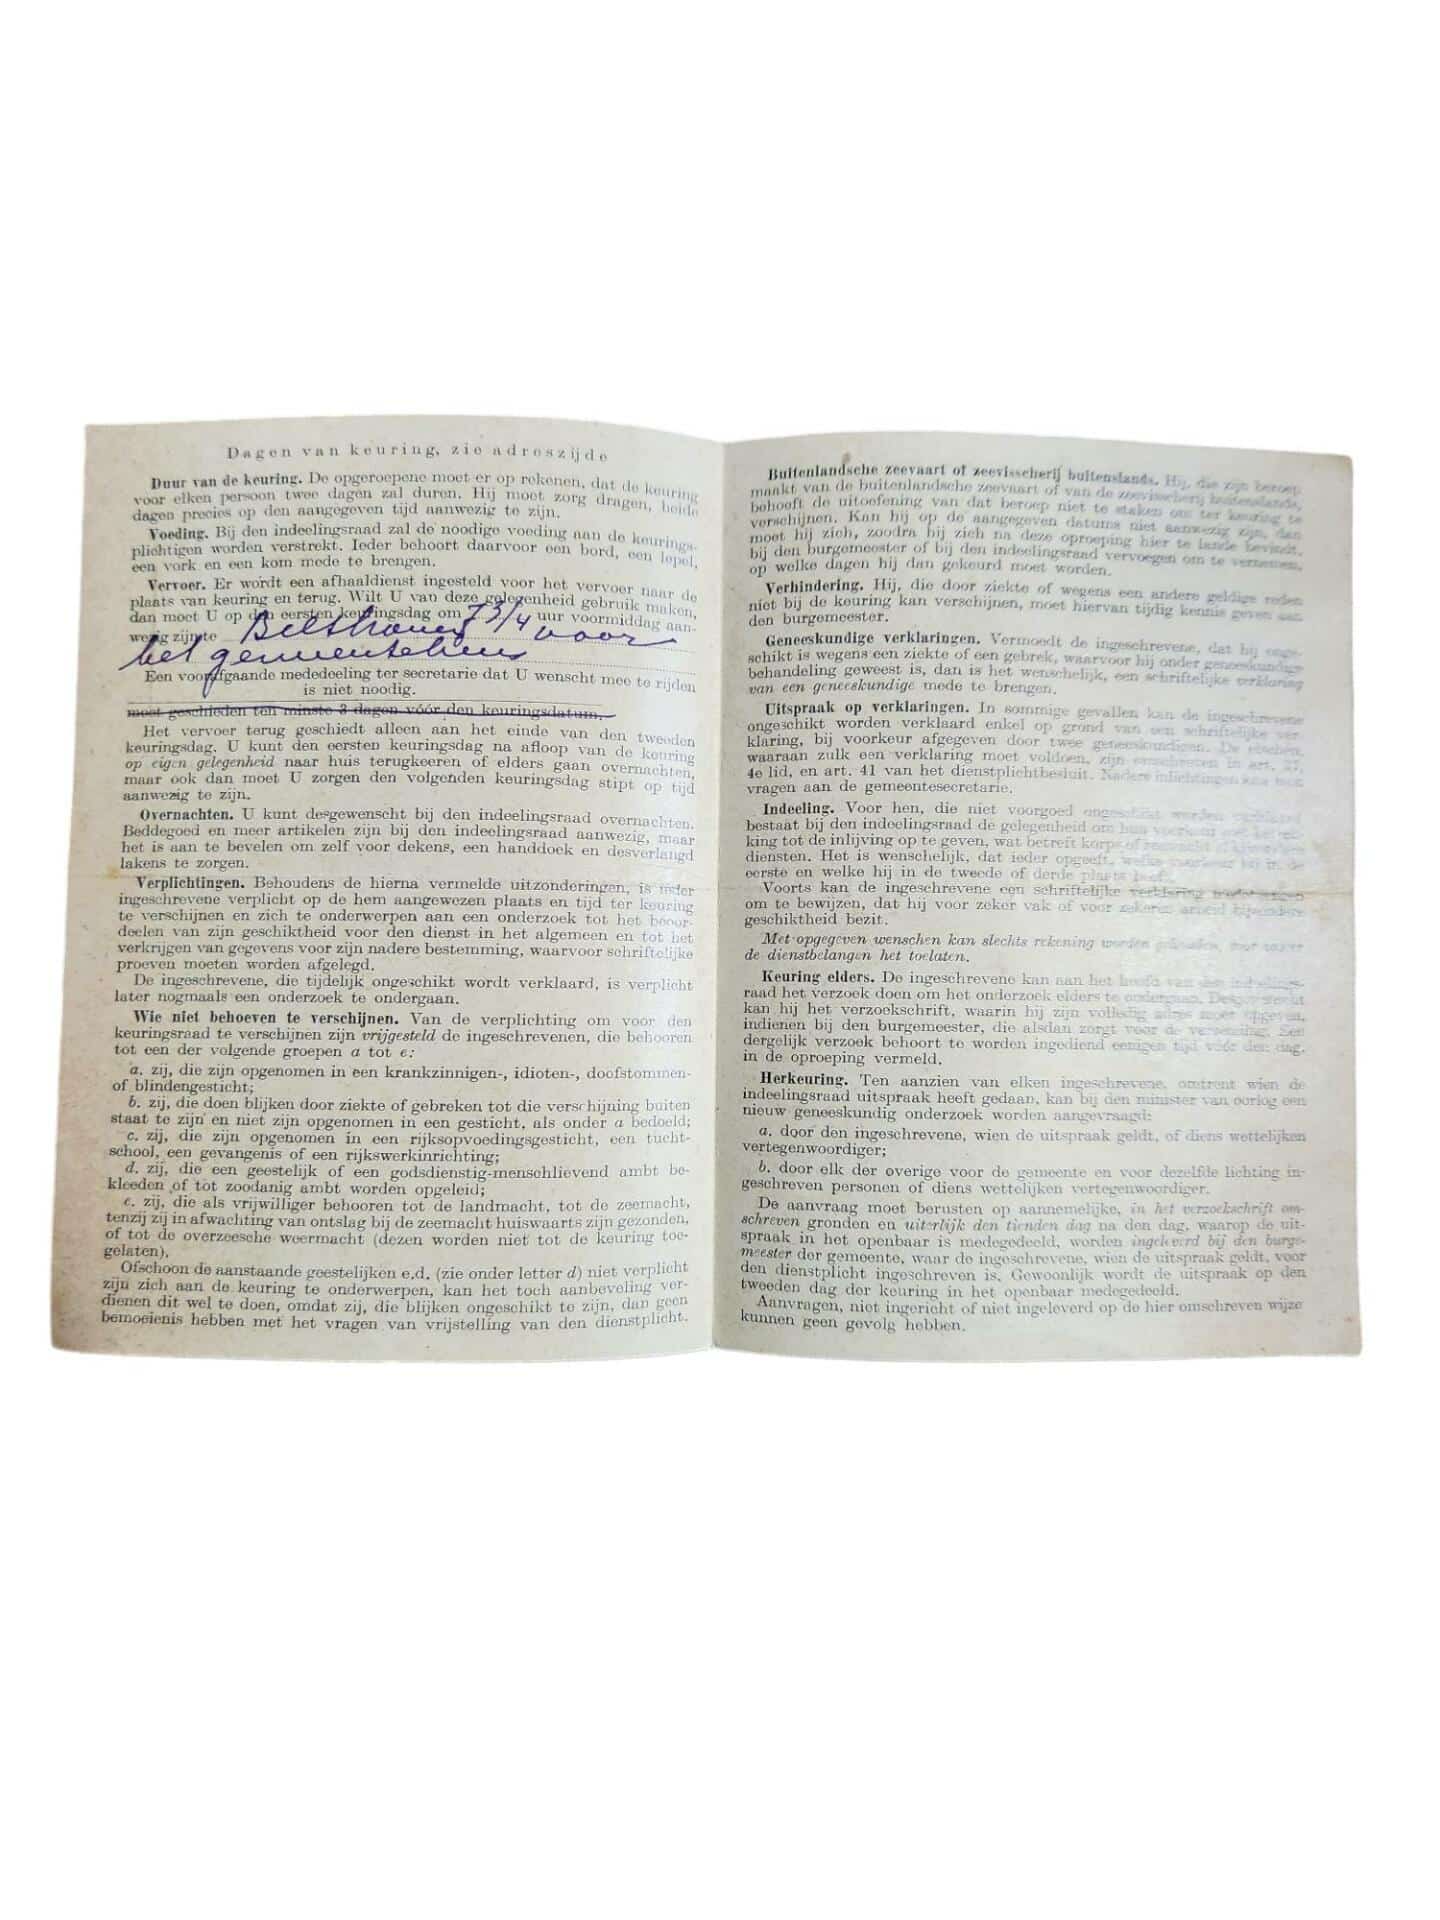 Dagen van keuring, zie adreszijde
Duur van de keuring. De opgeroepene moet er op rekenen, dat de keuring
voor elken persoon twee dagen zal duren. Hij moet zorg dragen, beide
dagen precies op den aangegeven tijd aanwezig te zijn.
Voeding. Bij den indeelingsraad zal de noodige voeding aan de keurings-
plichtigen worden verstrekt. Ieder behoort daarvoor een bord, een lepel,
een vork en een kom mede te brengen.
Vervoer. Er wordt een afhaaldienst ingesteld voor het vervoer naar de
plaats van keuring en terug. Wilt U van deze gelegenheid gebruik maken,
dan moet U op den eersten keuringsdag om 7 3/4 uur voormiddag aan-
wezig zijn te voor
het gemeentehuis
Een voorafgaande mededeeling ter secretarie dat U wenscht mee te rijden
is niet noodig.
moet geschieden ten minste 3 dagen vóór den keuringsdatum.
Het vervoer terug geschiedt alleen aan het einde van den tweeden
keuringsdag. U kunt den eersten keuringsdag na afloop van de keuring
op eigen gelegenheid naar huis terugkeeren of elders gaan overnachten,
maar ook dan moet U zorgen den volgenden keuringsdag stipt op tijd
aanwezig te zijn.
Overnachten. U kunt desgewenscht bij den indeelingsraad overnachten.
Beddegoed en meer artikelen zijn bij den indeelingsraad aanwezig, maar
het is aan te bevelen om zelf voor dekens, een handdoek en desverlangd
lakens te zorgen.
Verplichtingen. Behoudens de hierna vermelde uitzonderingen, is ieder
ingeschrevene verplicht op de hem aangewezen plaats en tijd ter keuring
te verschijnen en zich te onderwerpen aan een onderzoek tot het beoor-
deelen van zijn geschiktheid voor den dienst in het algemeen en tot het
verkrijgen van gegevens voor zijn nadere bestemming, waarvoor schriftelijke
proeven moeten worden afgelegd.
De ingeschrevene, die tijdelijk ongeschikt wordt verklaard, is verplicht
later nogmaals een onderzoek te ondergaan.
Wie niet behoeven te verschijnen. Van de verplichting om voor den
keuringsraad te verschijnen zijn vrijgesteld de ingeschrevenen, die behooren
tot een der volgende groepen a tot e:
a. zij, die zijn opgenomen in een krankzinnigen-, idioten-, doofstommen-
of blindengesticht;
b. zij, die doen blijken door ziekte of gebreken tot die verschijning buiten
staat te zijn en niet zijn opgenomen in een gesticht, als onder a bedoeld;
c. zij, die zijn opgenomen in een rijksopvoedingsgesticht, een tucht-
school, een gevangenis of een rijkswerkinrichting;
d. zij, die een geestelijk of een godsdienstig-menschlievend ambt be-
kleeden of tot zoodanig ambt worden opgeleid;
e. zij, die als vrijwilliger behooren tot de landmacht, tot de zeemacht,
tenzij zij in afwachting van ontslag bij de zeemacht huiswaarts zijn gezonden,
of tot de overzeesche weermacht (dezen worden niet tot de keuring toe-
gelaten).
Ofschoon de aanstaande geestelijken e.d. (zie onder letter d) niet verplicht
zijn zich aan de keuring te onderwerpen, kan het toch aanbeveling ver-
dienen dit wel te doen, omdat zij, die blijken ongeschikt te zijn, dan geen
bemoeienis hebben met het vragen van vrijstelling van den dienstplicht.
Buitenlandsche zeevaart of zeevisscherij buitenslands. Hij, die zijn beroep
maakt van de buitenlandsche zeevaart of van de zeevisscherij buitenslands,
behoeft de uitoefening van dat beroep niet te staken om ter keuring te
verschijnen. Kan hij op de aangegeven datums niet aanwezig zijn, dan
moet hij zich, zoodra hij zich na deze oproeping hier te lande bevindt,
bij den burgemeester of bij den indeelingsraad vervoegen om te vernemen,
op welke dagen hij dan gekeurd moet worden.
Verhindering. Hij, die door ziekte of wegens een andere geldige reden
niet bij de keuring kan verschijnen, moet hiervan tijdig kennis geven aan
den burgemeester.
Geneeskundige verklaringen. Vermoedt de ingeschrevene, dat hij onge-
schikt is wegens een ziekte of een gebrek, waarvoor hij onder geneeskundige
behandeling geweest is, dan is het wenschelijk, een schriftelijke verklaring
van een geneeskundige mede te brengen.
Uitspraak op verklaringen. In sommige gevallen kan de ingeschrevene
ongeschikt worden verklaard enkel op grond van een schriftelijke ver-
klaring, bij voorkeur afgegeven door twee geneeskundigen. De eischen,
waaraan zulk een verklaring moet voldoen, zijn omschreven in art. 37,
4e lid, en art. 41 van het dienstplichtbesluit. Nadere inlichtingen kan men
vragen aan de gemeentesecretarie.
Indeeling. Voor hen, die niet voorgoed ongeschikt worden verklaard
bestaat bij den indeelingsraad de gelegenheid om hun voorkeur met betrek-
king tot de inlijving op te geven, wat betreft korps of
diensten. Het is wenschelijk, dat ieder opgeeft, welke voorkeur hij in de
eerste en welke hij in de tweede of derde plaats heeft.
Voorts kan de ingeschrevene een schriftelijke verklaring medebrengen
om te bewijzen, dat hij voor zeker vak of voor zekeren arbeid bijzondere
geschiktheid bezit.
Met opgegeven wenschen kan slechts rekening worden gehouden, voor zoover
de dienstbelangen het toelaten.
Keuring elders. De ingeschrevene kan aan het hoofd van den indeelings-
raad het verzoek doen om het onderzoek elders te ondergaan. Desgewenscht
kan hij het verzoekschrift, waarin hij zijn volledig adres moet opgeven,
indienen bij den burgemeester, die alsdan zorgt voor de verzending. Een
dergelijk verzoek behoort te worden ingediend eenigen tijd vóór den dag,
in de oproeping vermeld.
Herkeuring. Ten aanzien van elken ingeschrevene, omtrent wien de
indeelingsraad uitspraak heeft gedaan, kan bij den minister van oorlog een
nieuw geneeskundig onderzoek worden aangevraagd:
a. door den ingeschrevene, wien de uitspraak geldt, of diens wettelijken
vertegenwoordiger;
b. door elk der overige voor de gemeente en voor dezelfde lichting in-
geschreven personen of diens wettelijken vertegenwoordiger.
De aanvraag moet berusten op aannemelijke, in het verzoekschrift om-
schreven gronden en uiterlijk den tienden dag na den dag, waarop de uit-
spraak in het openbaar is medegedeeld, worden ingeleverd bij den burge-
meester der gemeente, waar de ingeschrevene, wien de uitspraak geldt, voor
den dienstplicht ingeschreven is. Gewoonlijk wordt de uitspraak op den
tweeden dag der keuring in het openbaar medegedeeld.
Aanvragen, niet ingericht of niet ingeleverd op de hier omschreven wijze
kunnen geen gevolg hebben.